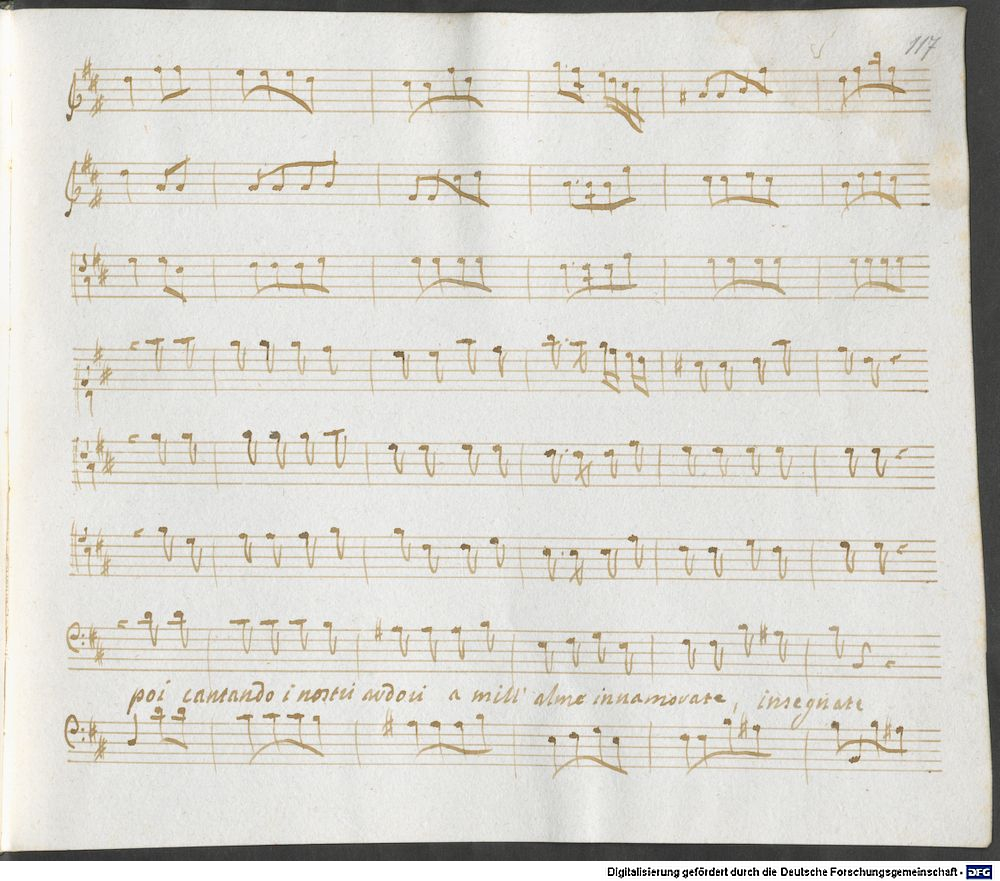 117
poi cantando i nostri ardori a mill' alme innamorate, insegnate
Digitalisierung gefördert durch die Deutsche Forschungsgemeinschaft - DFG